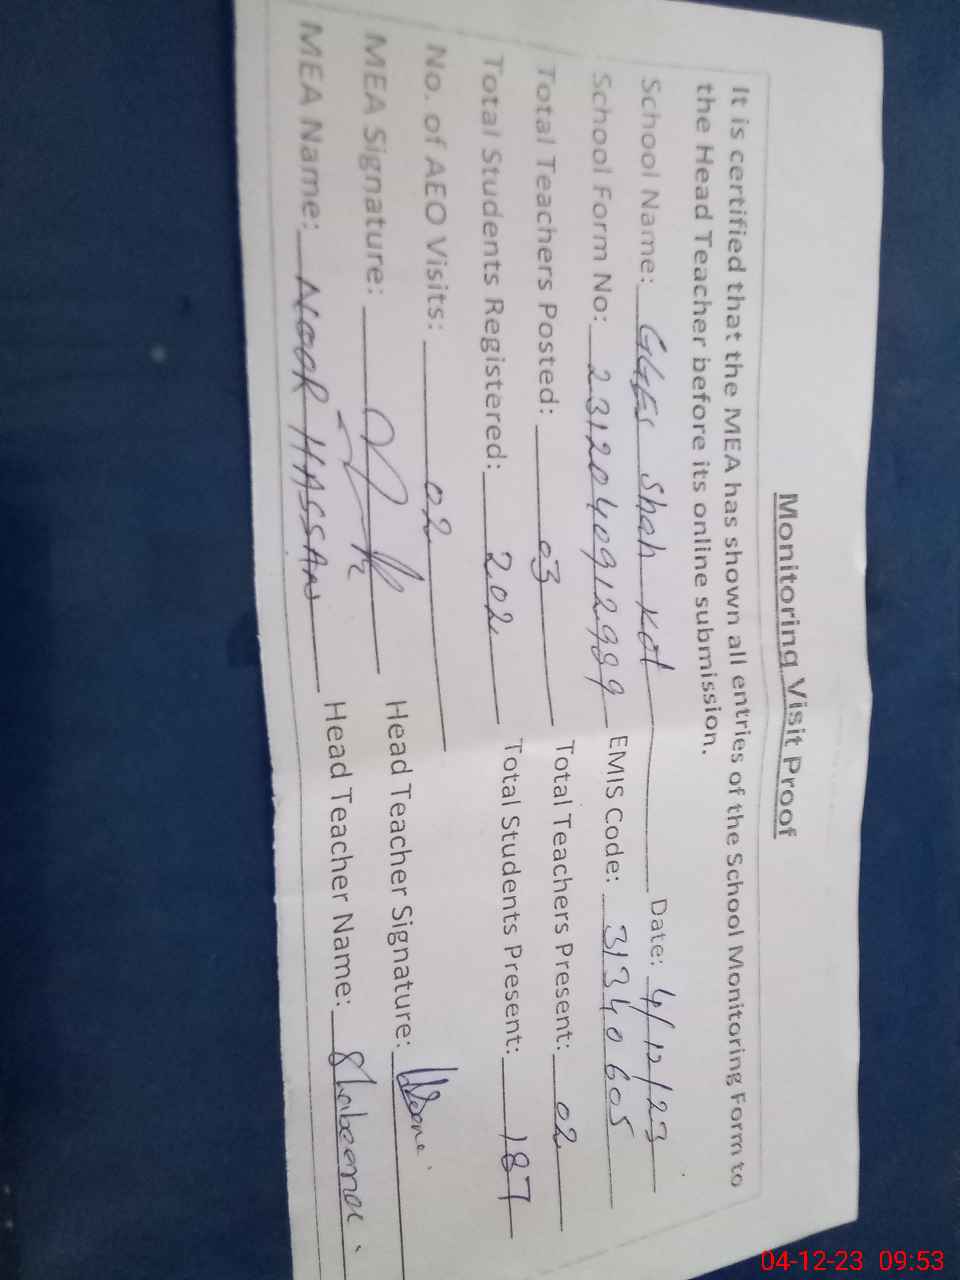 Monitoring Visit Proof
It is certified that the MEA has shown all entries of the School Monitoring Form to
the Head Teacher before its online submission.
School Name: GGES Shah Kot Date: 4/12/23
School Form No: 2312040912999 EMIS Code: 31340605
Total Teachers Posted: 03 Total Teachers Present: 02
Total Students Registered: 202 Total Students Present: 187
No. of AEO Visits: 02
MEA Signature: Head Teacher Signature:
MEA Name: NOOR HASSAN Head Teacher Name: Shabeena
04-12-23 09:53